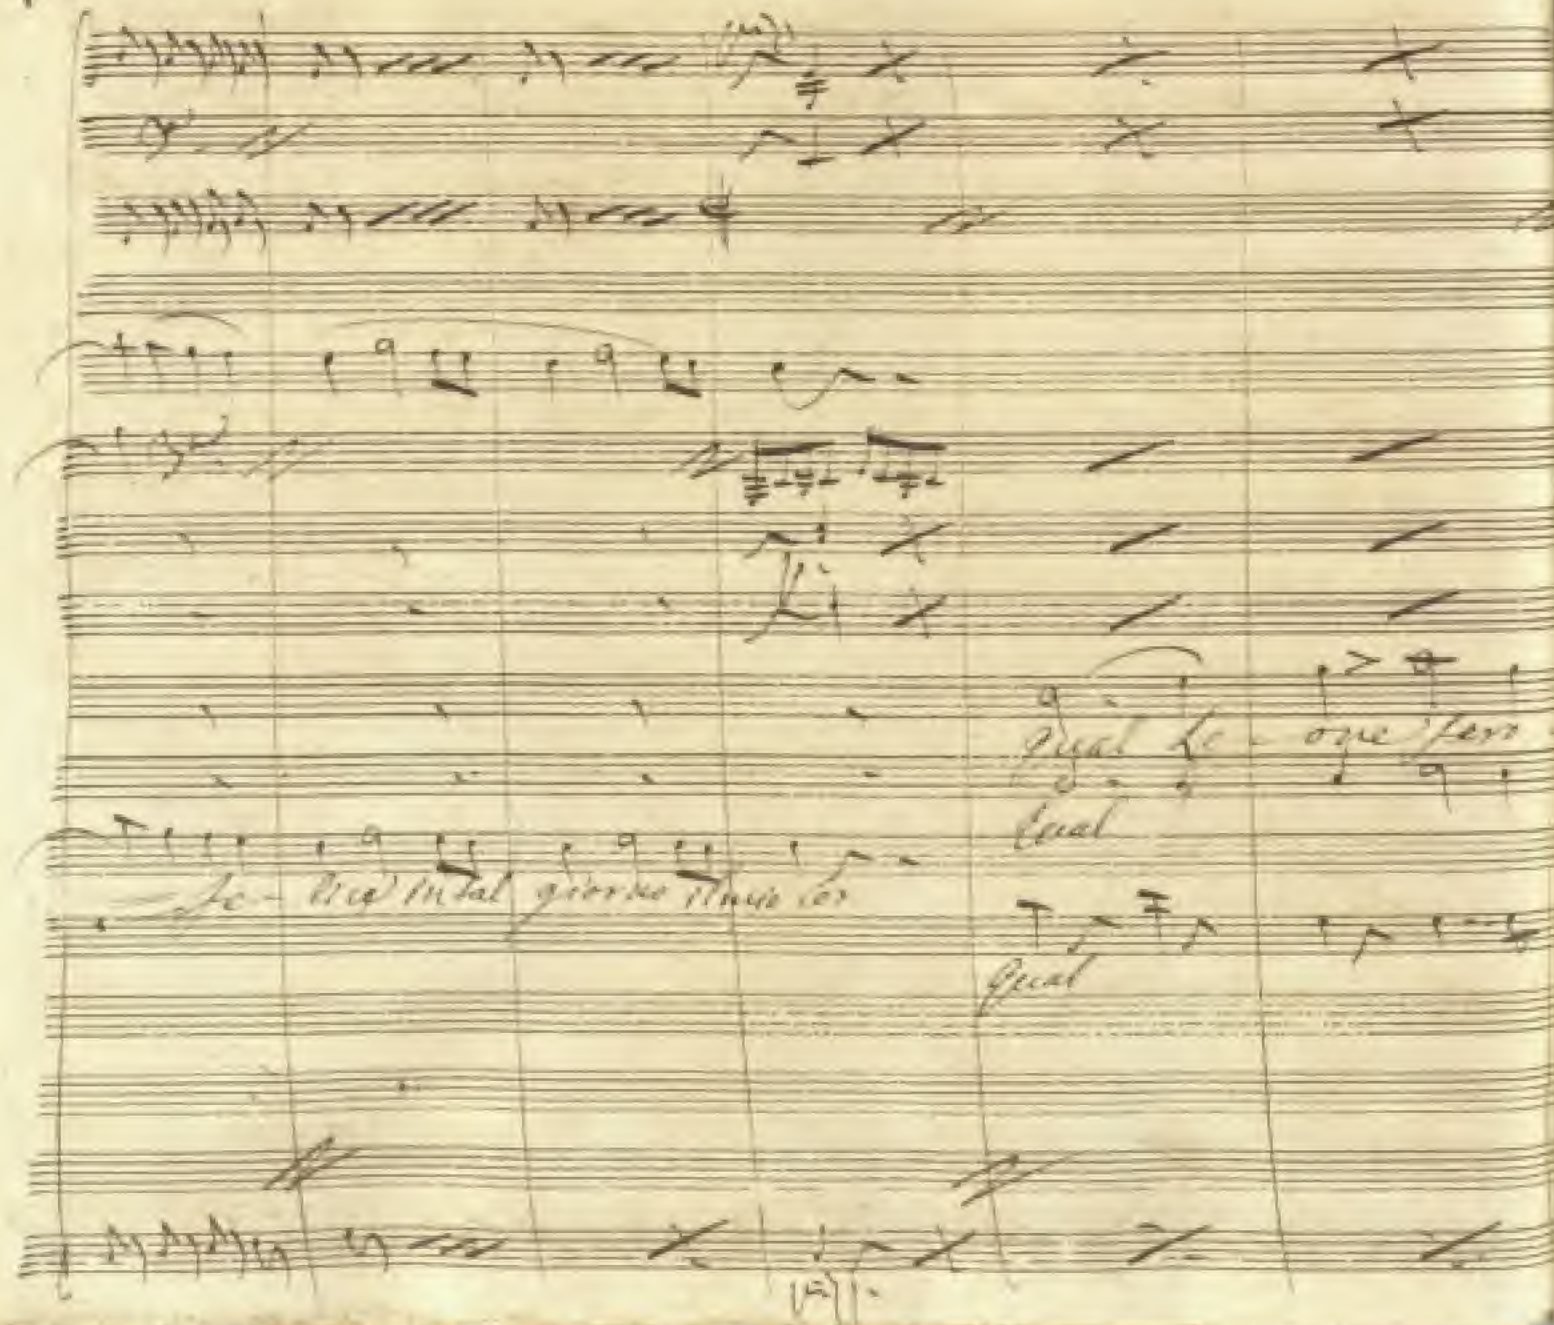 Qual Le - one fero
Qual
fe - lice in tal giorno il mio cor
Qual